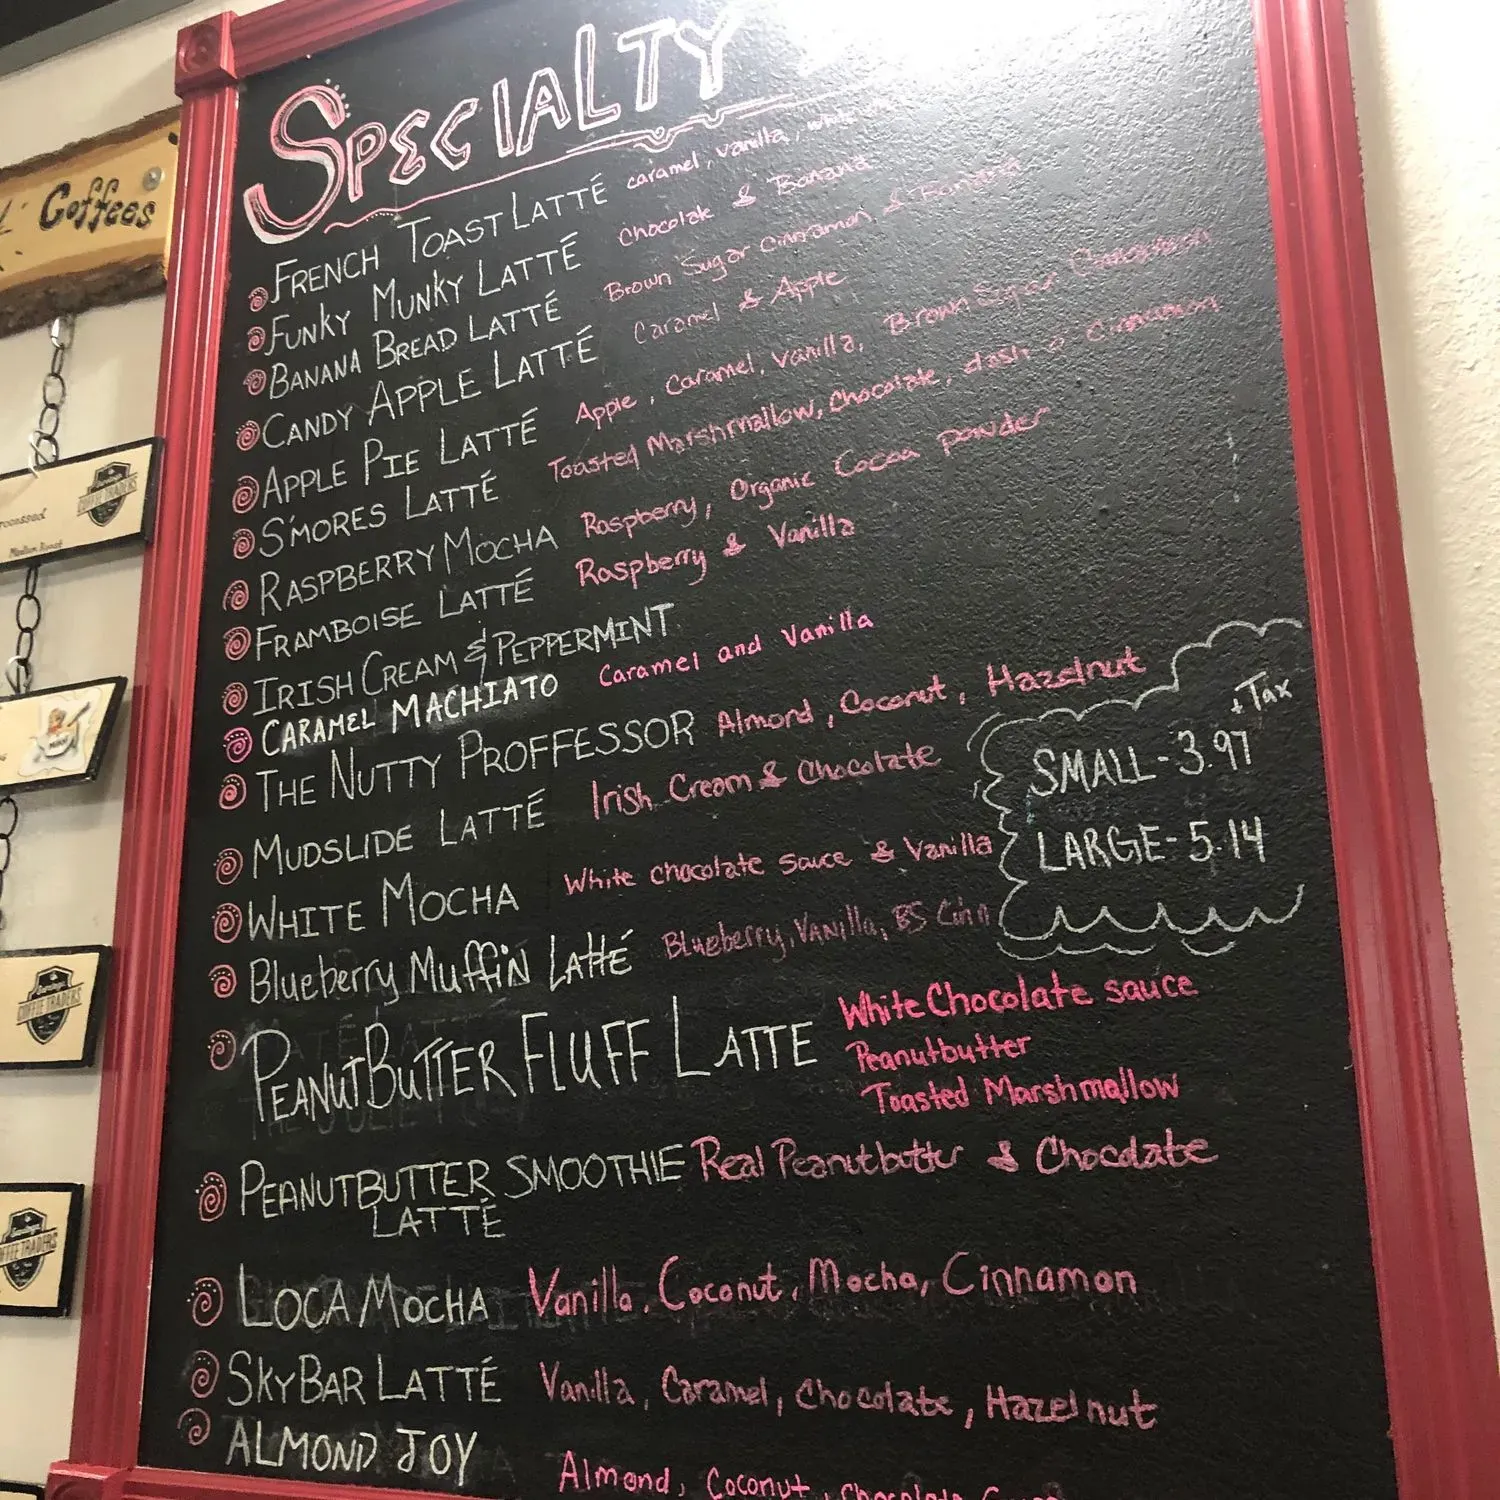 SPECIALTY
Coffees
FRENCH TOAST LATTÉ caramel, vanilla, white
FUNKY MUNKY LATTÉ Chocolate & Banana
BANANA BREAD LATTÉ Brown Sugar cinnamon & Banana
CANDY APPLE LATTÉ Caramel & Apple
APPLE PIE LATTÉ Apple, Caramel, Vanilla, Brown Sugar Cinnamon
S'MORES LATTÉ Toasted Marshmallow, Chocolate, dash o' Cinnamon
RASPBERRY MOCHA Raspberry, Organic Cocoa powder
FRAMBOISE LATTÉ Raspberry & Vanilla
IRISH CREAM & PEPPERMINT
CARAMEL MACHIATO Caramel and Vanilla
THE NUTTY PROFFESSOR Almond, Coconut, Hazelnut
MUDSLIDE LATTÉ Irish Cream & Chocolate
WHITE MOCHA White chocolate sauce & Vanilla
Blueberry Muffin Latté Blueberry, Vanilla, BS Cinn
+ Tax
SMALL - 3.97
LARGE - 5.14
PEANUTBUTTER FLUFF LATTE White Chocolate sauce
Peanutbutter
Toasted Marshmallow
PEANUTBUTTER SMOOTHIE Real Peanutbutter & Chocolate
LATTÉ
LOCA MOCHA Vanilla, Coconut, Mocha, Cinnamon
SKYBAR LATTÉ Vanilla, Caramel, Chocolate, Hazelnut
ALMOND JOY Almond, Coconut, Chocolate
COFFEE TRADERS
Medium Roast
COFFEE TRADERS
COFFEE TRADERS